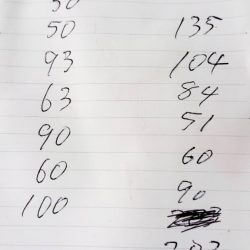 50
50 135
93 104
63 84
90 51
60 60
100 90